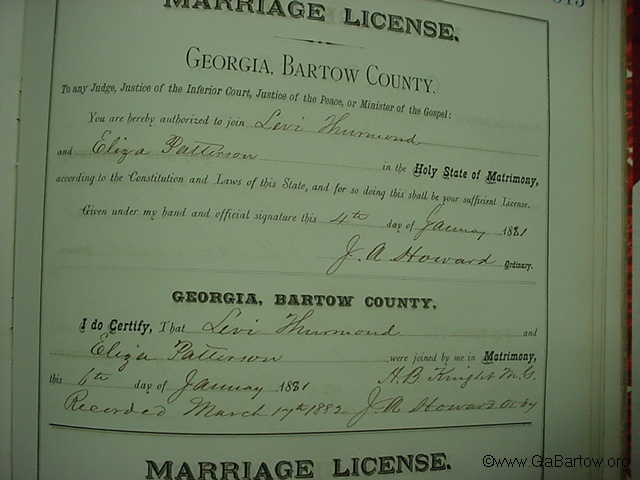 MARRIAGE LICENSE.
GEORGIA, BARTOW COUNTY.
To any Judge, Justice of the Inferior Court, Justice of the Peace, or Minister of the Gospel:
You are hereby authorized to join Levi Thurmond
and Eliza Patterson in the Holy State of Matrimony,
according to the Constitution and Laws of this State, and for so doing this shall be your sufficient License.
Given under my hand and official signature this 4th day of January 1881
J. A Howard Ordinary.
GEORGIA, BARTOW COUNTY.
I do Certify, That Levi Thurmond and
Eliza Patterson were joined by me in Matrimony,
this 6th day of January 1881 H. B Knight M.G.
Recorded March 17th 1882 J A Howard Ordy
MARRIAGE LICENSE.
©www.GaBartow.org